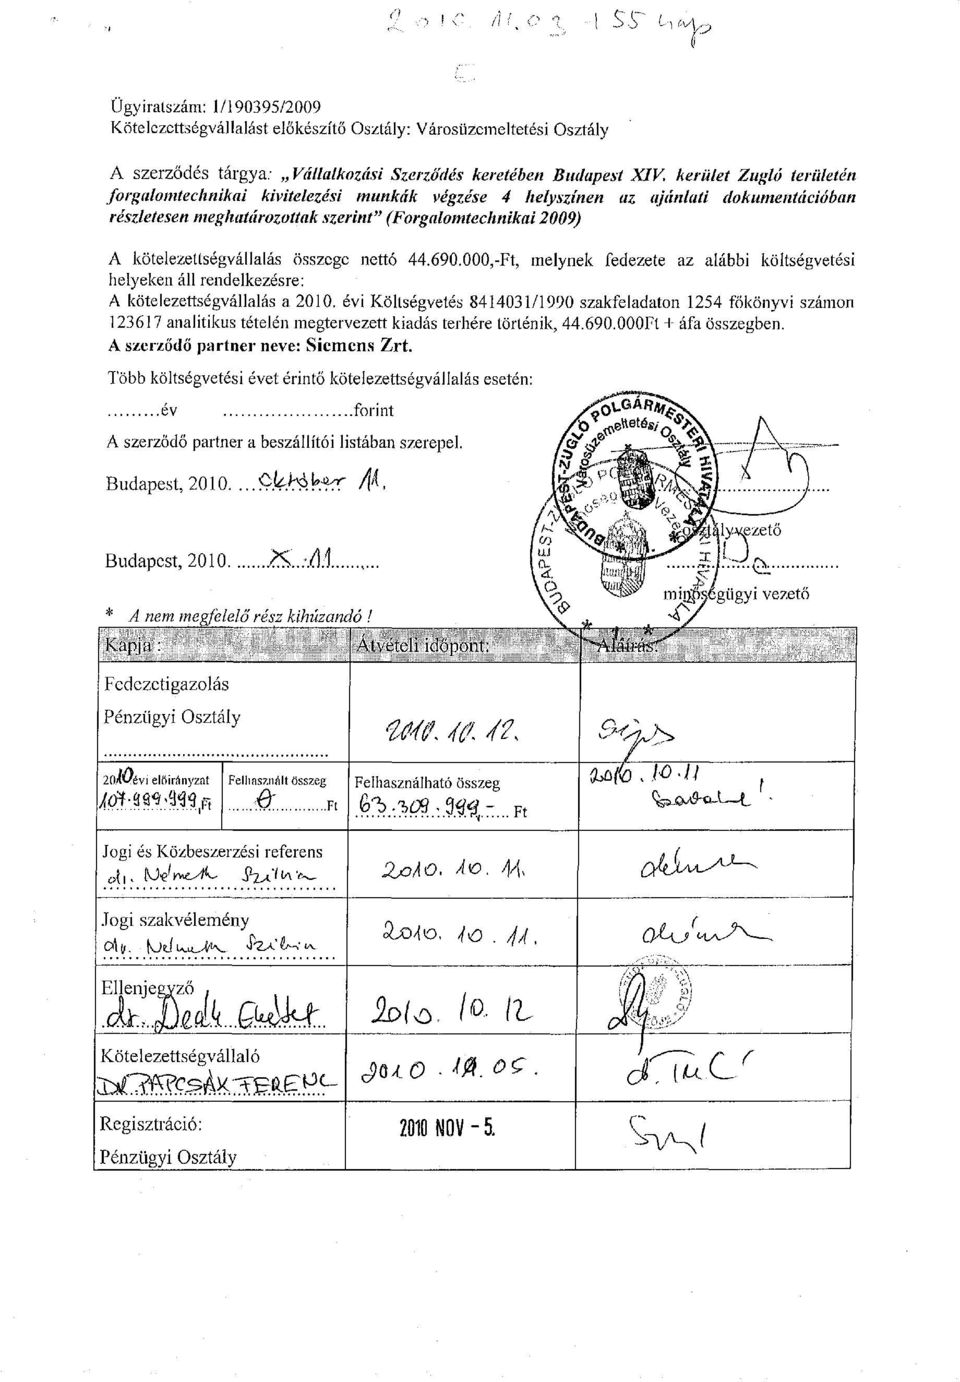 2010. 11. 03 155 nap
Ügyiratszám: 1/190395/2009
Kötelezettségvállalást előkészítő Osztály: Városüzemeltetési Osztály
A szerződés tárgya: „Vállalkozási Szerződés keretében Budapest XIV. kerület Zugló területén
forgalomtechnikai kivitelezési munkák végzése 4 helyszínen az ajánlati dokumentációban
részletesen meghatározottak szerint” (Forgalomtechnikai 2009)
A kötelezettségvállalás összege nettó 44.690.000,-Ft, melynek fedezete az alábbi költségvetési
helyeken áll rendelkezésre:
A kötelezettségvállalás a 2010. évi Költségvetés 8414031/1990 szakfeladaton 1254 főkönyvi számon
123617 analitikus tételén megtervezett kiadás terhére történik, 44.690.000Ft + áfa összegben.
A szerződő partner neve: Siemens Zrt.
Több költségvetési évet érintő kötelezettségvállalás esetén:
.........év ......................forint
A szerződő partner a beszállítói listában szerepel.
BUDAPEST-ZUGLÓ POLGÁRMESTERI HIVATALA
Városüzemeltetési Osztály
Budapest, 2010. ...Október 11.
osztályvezető
Budapest, 2010. ......X. 11.........
minőségügyi vezető
* A nem megfelelő rész kihúzandó !
Kapja : Átvételi időpont: Aláírás:
Fedezetigazolás
Pénzügyi Osztály 2010. 10. 12.
2010 évi előirányzat Felhasznált összeg Felhasználható összeg 2010. 10. 11
107.999.999,Ft ......0............Ft 63.309.999,-..... Ft
Jogi és Közbeszerzési referens
dr. Németh Szilvia 2010. 10. 11.
Jogi szakvélemény
dr. Németh Szilvia 2010. 10. 11.
Ellenjegyző
dr. Deák Eszter 2010. 10. 12
Kötelezettségvállaló
DR PAPCSÁK FERENC 2010. 10. 05.
Regisztráció: 2010 NOV - 5.
Pénzügyi Osztály